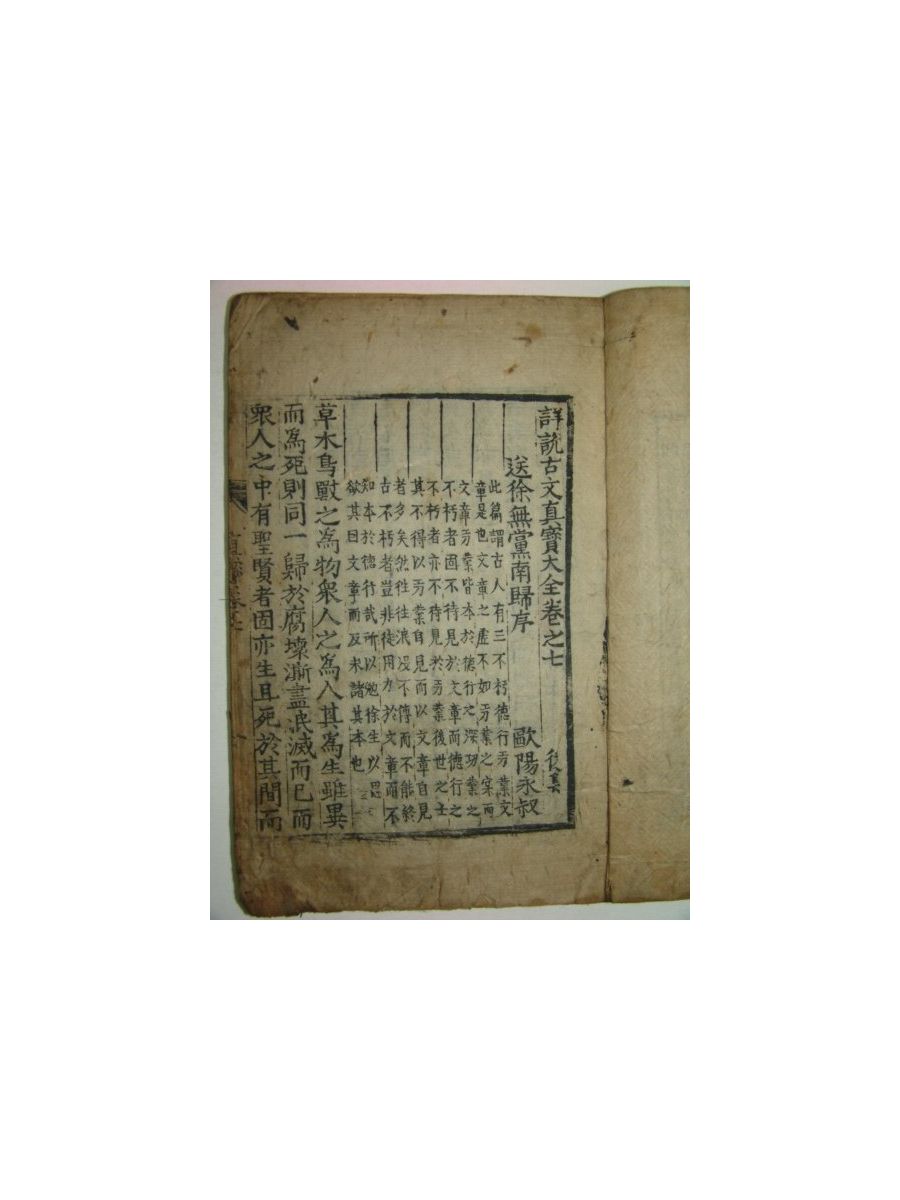 詳說古文真寶大全卷之七 後集
送徐無黨南歸序 歐陽永叔
此篇謂古人有三不朽德行功業文
章是也文章之虛不如功業之實而
文章功業皆本於德行之深功業之
不朽者固不待見於文章而德行之
不朽者亦不待見於功業後世之士
其不得以功業自見而以文章自見
者多矣然往往浪沒不傳而不能終
古不朽者豈非徒用力於文章而不
知本於德行哉所以勉徐生以思
欲其因文章而反求諸其本也
草木鳥獸之爲物衆人之爲人其爲生雖異
而爲死則同一歸於腐壞澌盡泯滅而已而
衆人之中有聖賢者固亦生且死於其間而